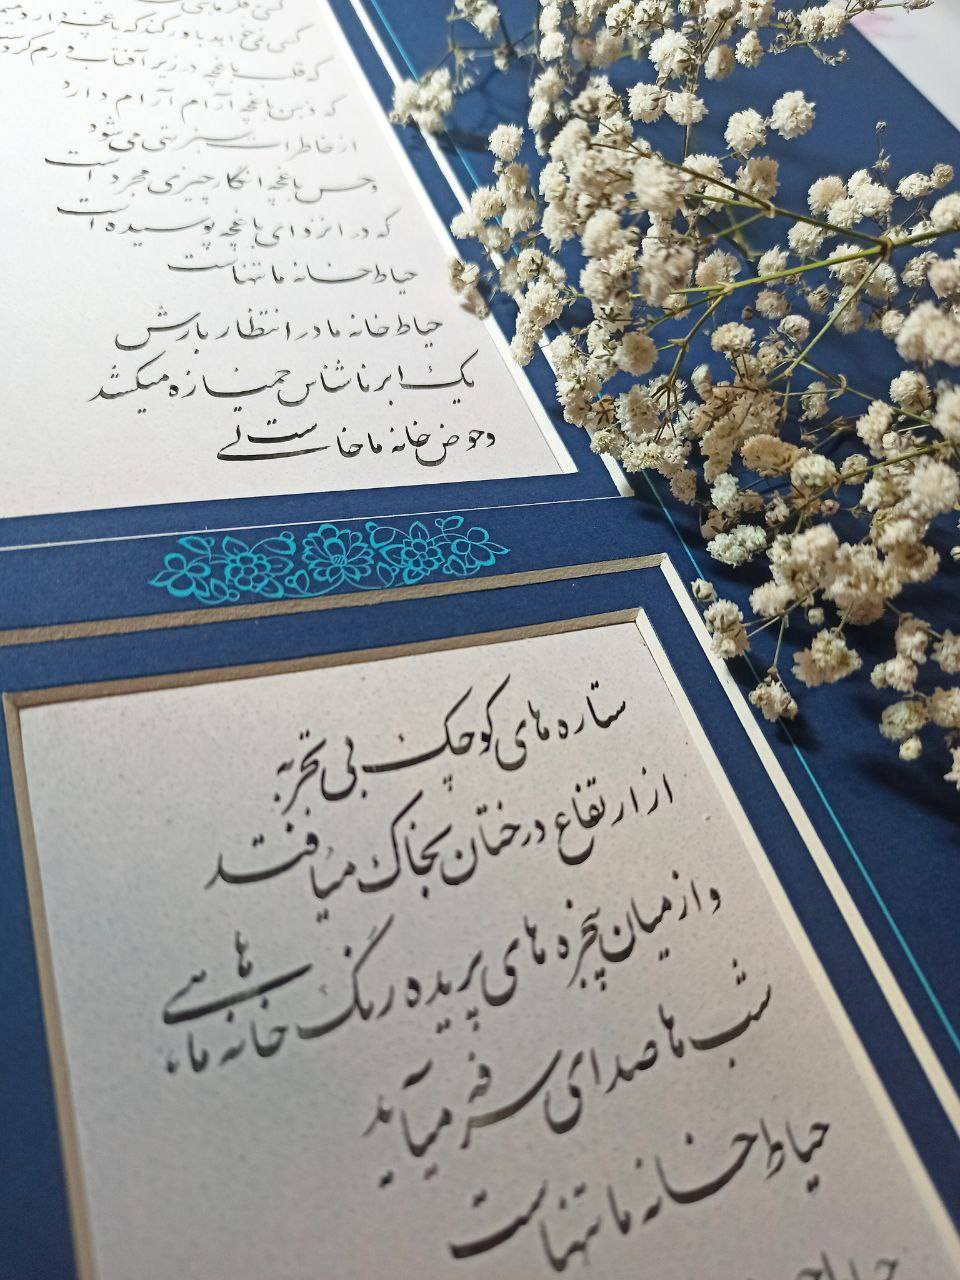 کسی نمی خواهد باور کند که باغچه دارد میمیرد
که قلب باغچه در زیر آفتاب ورم کرده
که ذهن باغچه آرام آرام دارد
از خاطرات سبز تهی می شود
و حس باغچه انگار چیزی مجرد است
که در انزوای باغچه پوسیده است
حیاط خانه ما تنهاست
حیاط خانه ما در انتظار بارش
یک ابر ناشناس خمیازه میکشد
و حوض خانه ما خالی ست
ستاره های کوچک بی تجربه
از ارتفاع درختان بخاک میافتد
و از میان پنجره های پریده رنگ خانه ماهی ها
شب ها صدای سرفه میآید
حیاط خانه ما تنهاست